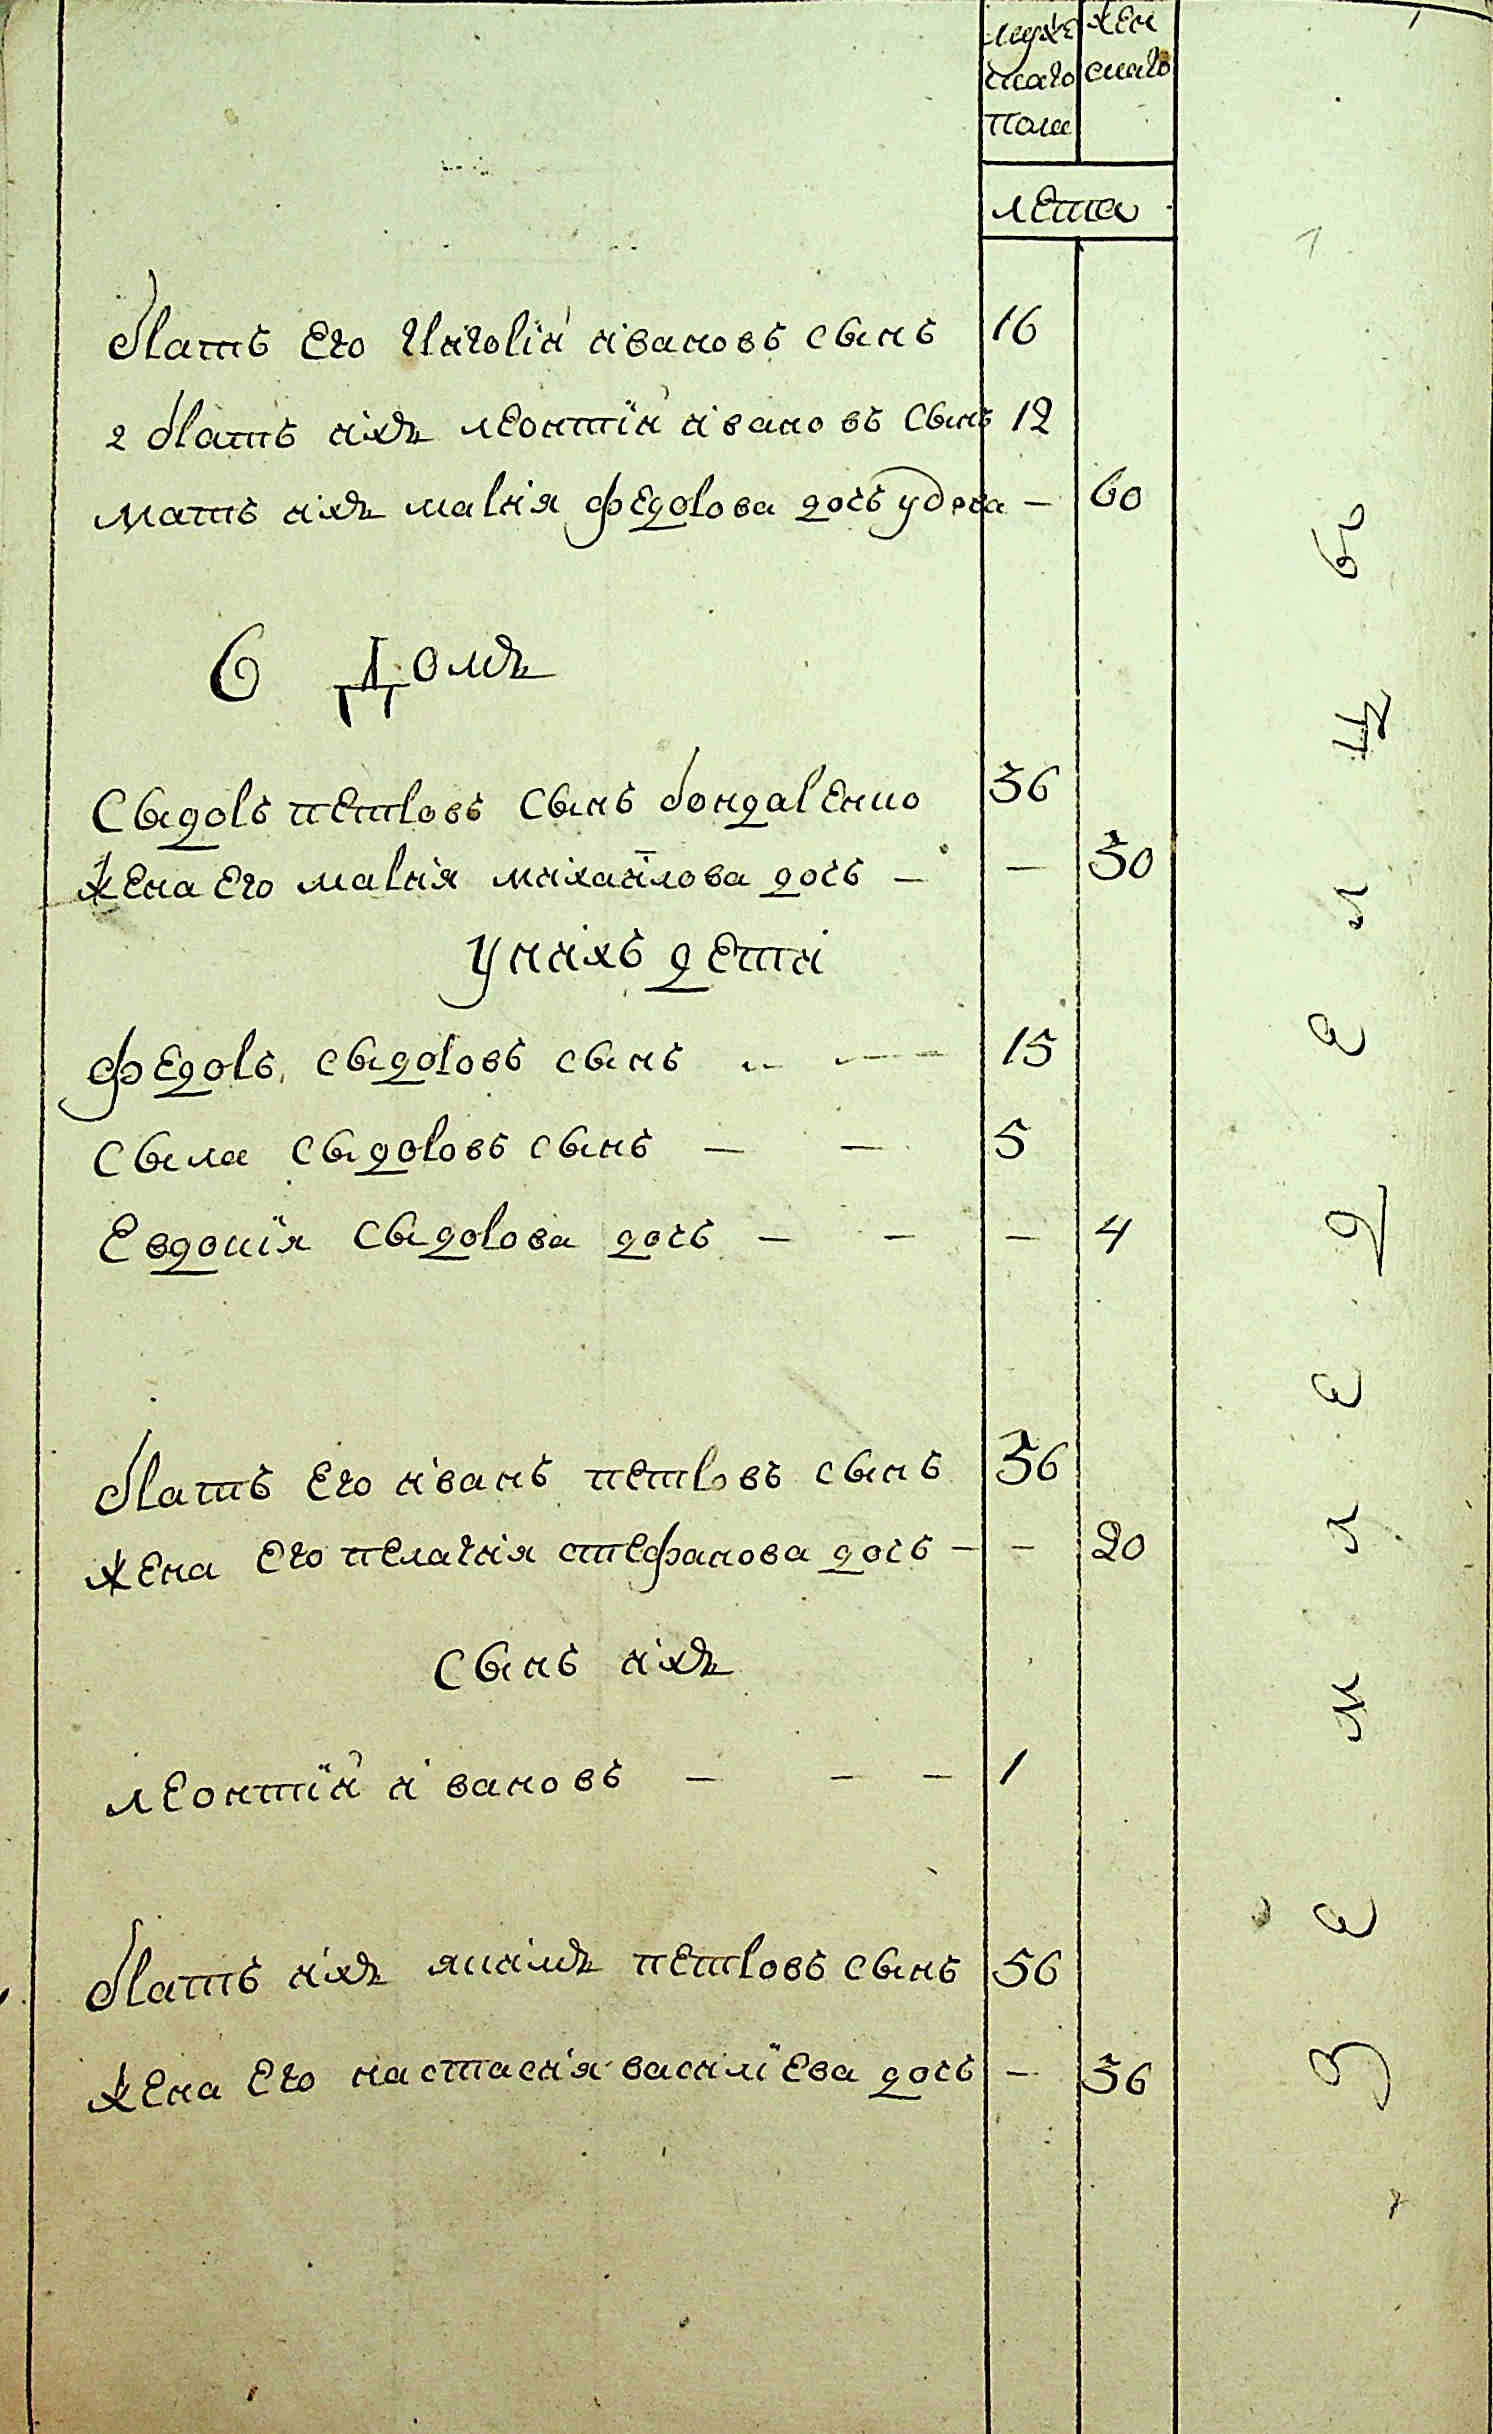 муже жен
скаго скаго
пола
лета
братъ его григорій ивановъ сынъ 16
2 братъ ихъ леонтій ивановъ сынъ 12
мать ихъ марія федорова дочь удова — 60
6 Домъ
Сыдоръ петровъ сынъ бондаренко 36
жена его марія михайлова дочь — — 30
У нихъ дети
федоръ сыдоровъ сынъ — 15
Сыла сыдоровъ сынъ — — 5
Евдокія Сыдорова дочь — — — 4
братъ его иванъ петровъ сынъ 36
жена его пелагия стефанова дочь — — 20
Сынъ ихъ
леонтій ивановъ — — — 1
братъ ихъ якимъ петровъ сынъ 56
жена его настасия василіева дочь — 36
земледелецъ